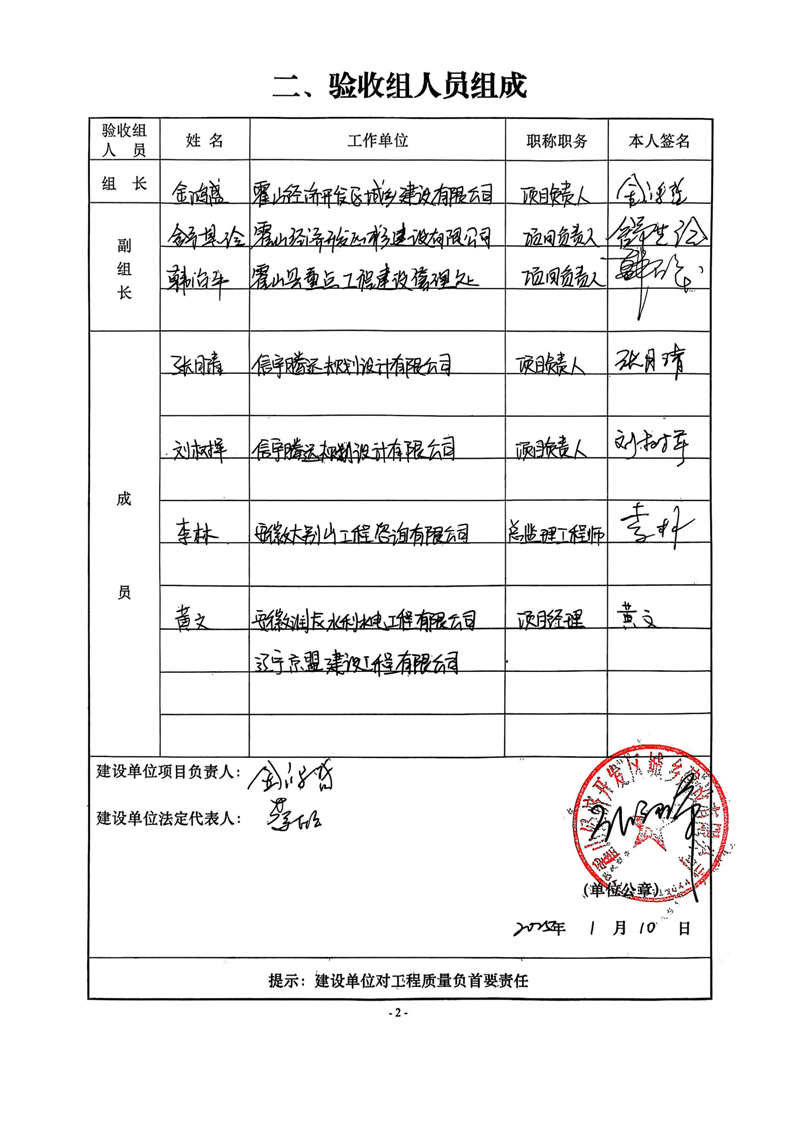 二、验收组人员组成
验收组
人 员
姓 名
工作单位
职称职务
本人签名
组 长
金鸿哲
霍山经济开发区城乡建设有限公司
项目负责人
副组长
霍山经济开发区城乡建设有限公司
项目负责人
韩
霍山县重点工程建设管理处
项目负责人
成员
张月清
信宇腾远规划设计有限公司
项目负责人
张月清
刘树军
信宇腾远规划设计有限公司
项目负责人
刘树军
李林
安徽大别山工程咨询有限公司
总监理工程师
李林
黄文
安徽润辰水利水电工程有限公司
项目经理
黄文
辽宁京盟建设工程有限公司
建设单位项目负责人:
建设单位法定代表人:
(单位公章)
2025年 1 月 10 日
提示:建设单位对工程质量负首要责任
- 2 -